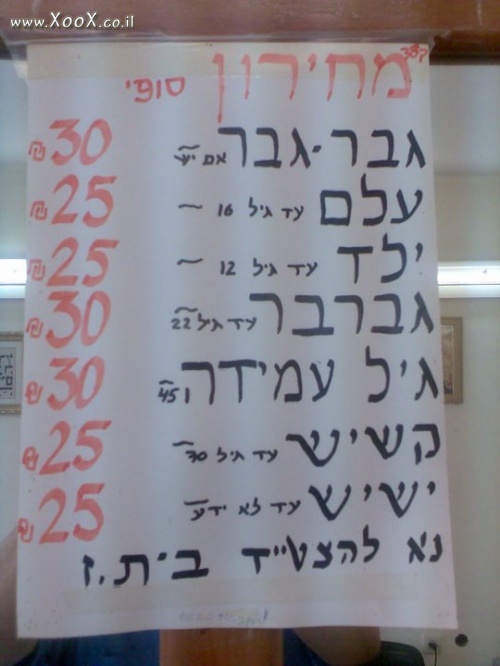 www.XooX.co.il
מחירון סופי
גבר-גבר אם יש ~ 30 ₪
עלם עד גיל 16 ~ 25 ₪
ילד עד גיל 12 ~ 25 ₪
גברבר עד גיל 22 ~ 30 ₪
גיל עמידה 45 ~ 30 ₪
קשיש עד גיל 70 ~ 25 ₪
ישיש עד לא ידע ~ 25 ₪
נא להצטייד ב׳ת.ז